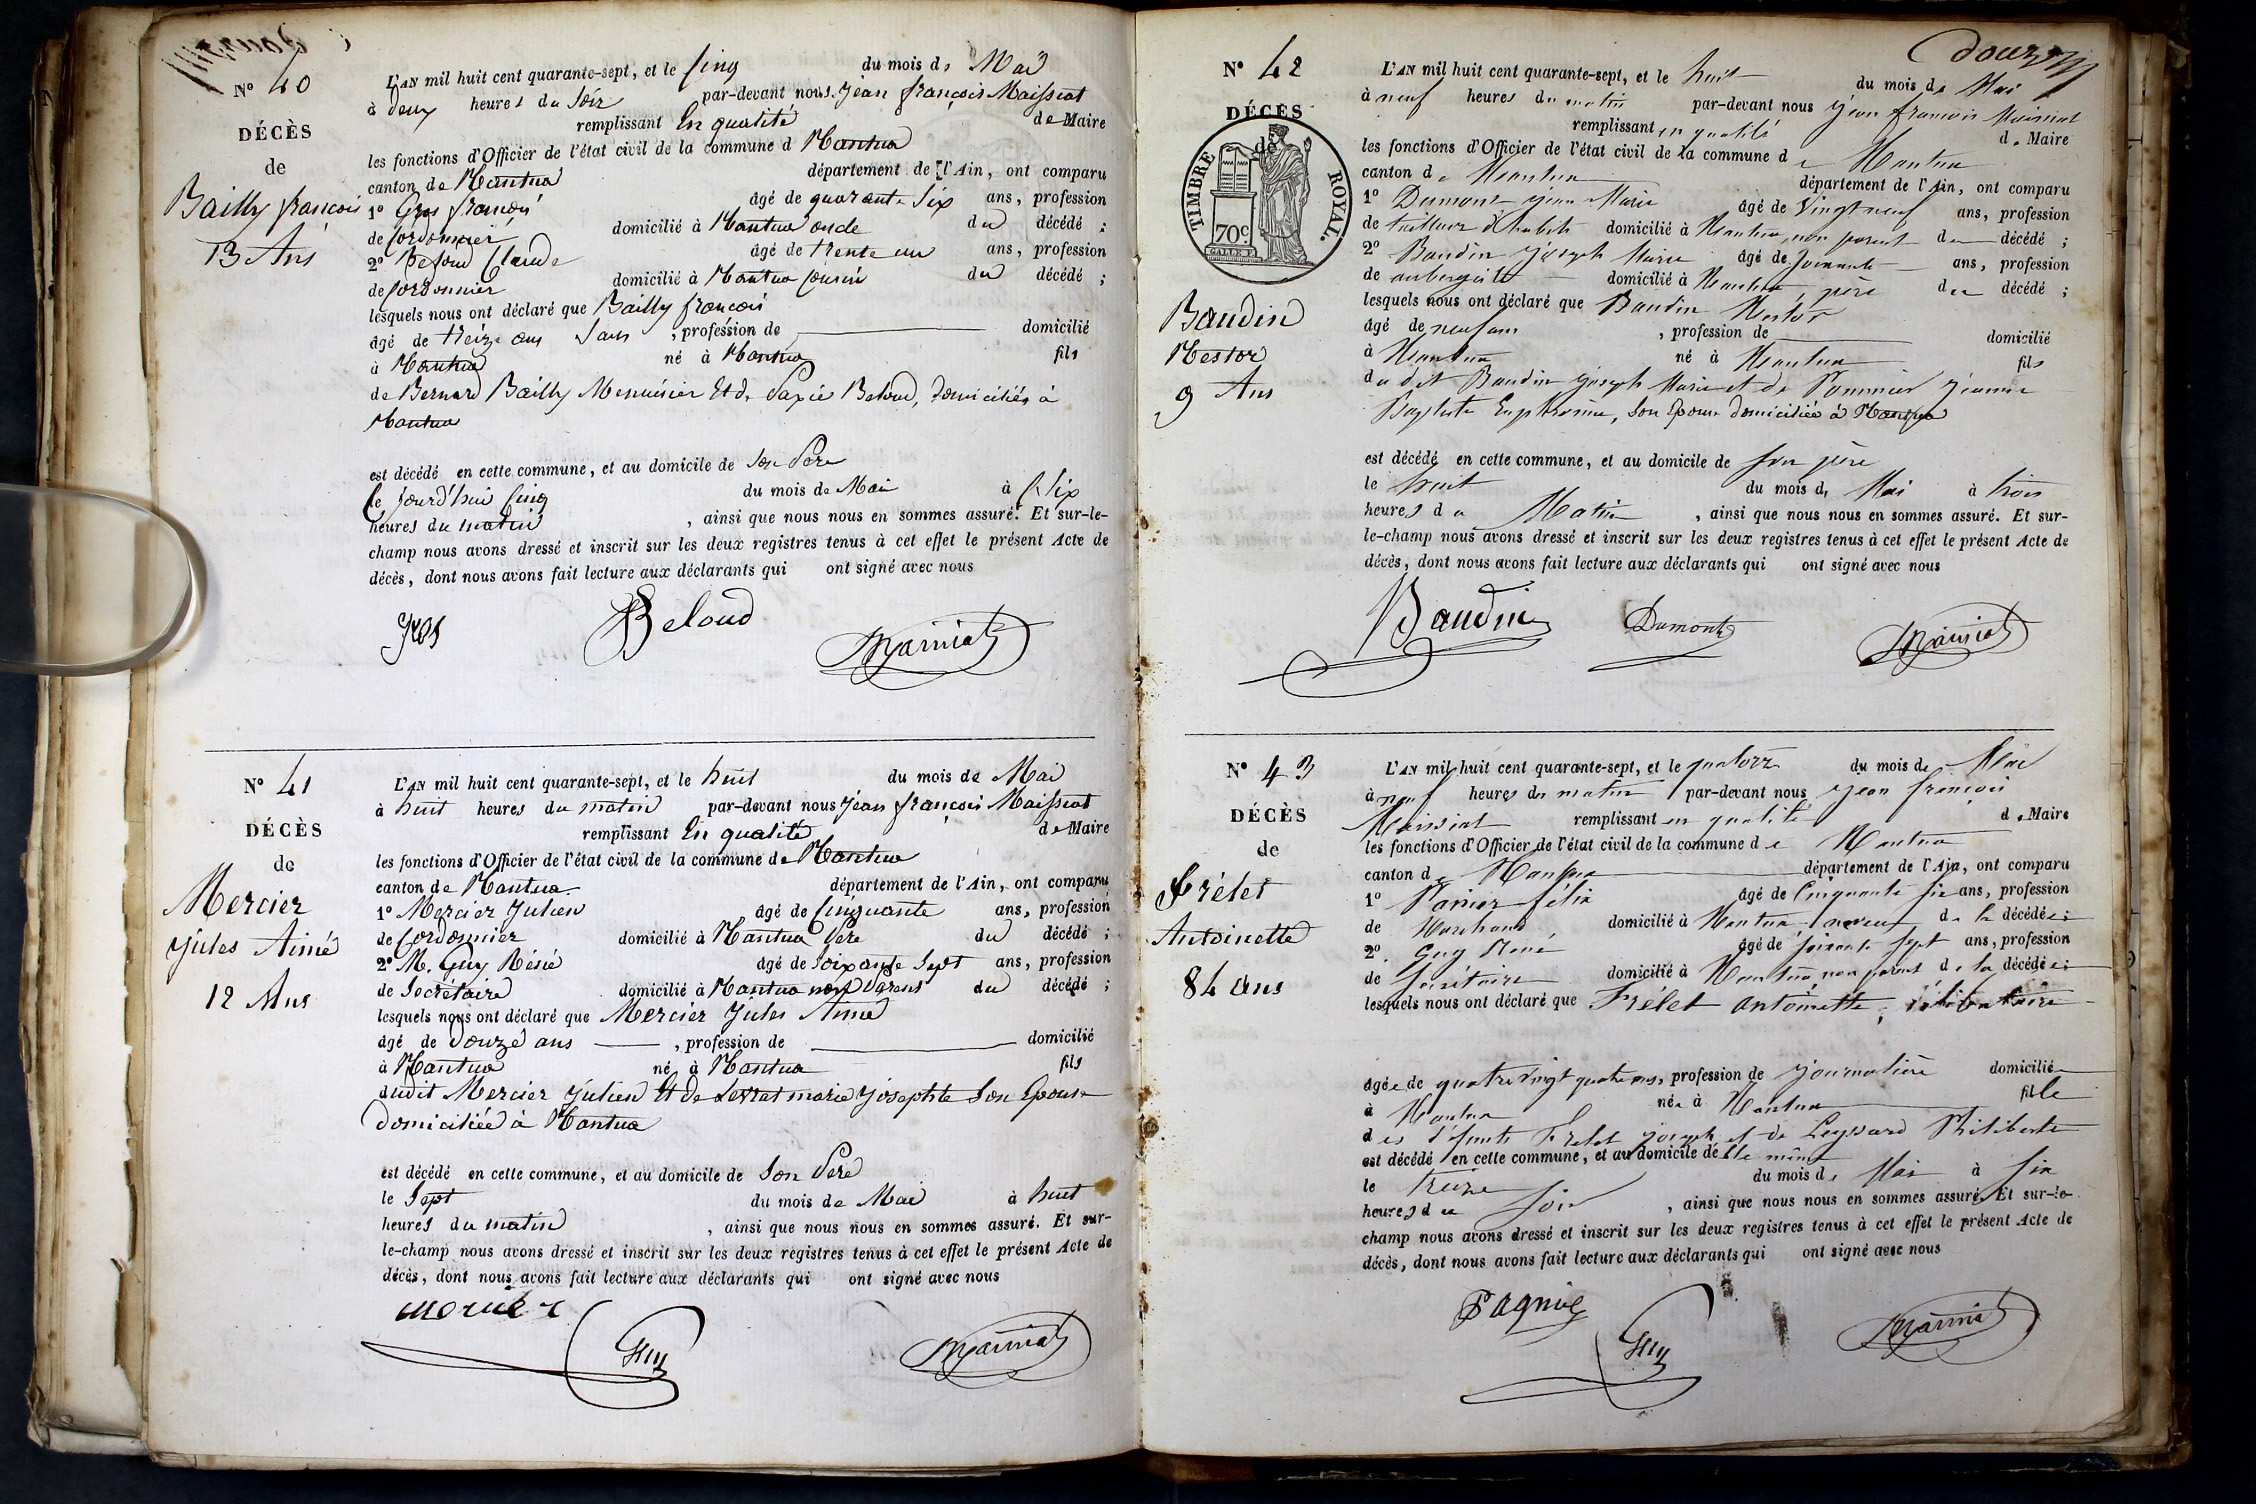 N° 40
DÉCÈS
de
Bailly françois
13 Ans
L'AN mil huit cent quarante-sept, et le Cinq du mois de Mai
à deux heures du Soir par-devant nous Jean françois Maissiat
remplissant En qualité de Maire
les fonctions d'Officier de l'état civil de la commune d Mantua
canton de Mantua département de l'Ain, ont comparu
1° Gros françois âgé de quarante Six ans, profession
de Cordonnier domicilié à Mantua oncle du décédé ;
2° Beloud Claude âgé de trente un ans, profession
de Cordonnier domicilié à Mantua Cousin du décédé ;
lesquels nous ont déclaré que Bailly françois
âgé de treize ans Sans , profession de domicilié
à Mantua né à Mantua fils
de Bernard Bailly Menuisier Et de Beloud, domiciliés à
Mantua
est décédé en cette commune, et au domicile de Son Père
le jourd'hui Cinq du mois de Mai à Six
heures du matin , ainsi que nous nous en sommes assuré. Et sur-le-
champ nous avons dressé et inscrit sur les deux registres tenus à cet effet le présent Acte de
décès, dont nous avons fait lecture aux déclarants qui ont signé avec nous
Gros Beloud Maissiat
N° 41
DÉCÈS
de
Mercier
Jules Aimé
12 Ans
L'AN mil huit cent quarante-sept, et le huit du mois de Mai
à huit heures du matin par-devant nous Jean françois Maissiat
remplissant En qualité de Maire
les fonctions d'Officier de l'état civil de la commune de Mantua
canton de Mantua département de l'Ain, ont comparu
1° Mercier Julien âgé de Cinquante ans, profession
de Cordonnier domicilié à Mantua Père du décédé ;
2° M. Guy Réné âgé de Soixante Sept ans, profession
de Secrétaire domicilié à Mantua non Parent du décédé ;
lesquels nous ont déclaré que Mercier Jules Aimé
âgé de douze ans , profession de domicilié
à Mantua né à Mantua fils
dudit Mercier Julien Et de Serrat marie josephte Son Epouse
Domiciliée à Mantua
est décédé en cette commune, et au domicile de Son Père
le Sept du mois de Mai à huit
heures du matin , ainsi que nous nous en sommes assuré. Et sur-
le-champ nous avons dressé et inscrit sur les deux registres tenus à cet effet le présent Acte de
décès, dont nous avons fait lecture aux déclarants qui ont signé avec nous
Mercier Guy Maissiat
douze
N° 42
DÉCÈS
de
TIMBRE ROYAL.
70c
Baudin
Nestor
9 Ans
L'AN mil huit cent quarante-sept, et le huit du mois de Mai
à neuf heures du matin par-devant nous Jean françois Maissiat
remplissant en qualité d. Maire
les fonctions d'Officier de l'état civil de la commune de Mantua
canton de Mantua département de l'Ain, ont comparu
1° Dumont Jean Marie âgé de Vingt neuf ans, profession
de tailleur d'habits domicilié à Mantua, non parent du décédé ;
2° Baudin Joseph Marie âgé de Soixante ans, profession
de aubergiste domicilié à Mantua, père du décédé ;
lesquels nous ont déclaré que Baudin Nestor
âgé de neuf ans , profession de domicilié
à Mantua né à Mantua fils
du dit Baudin Joseph Marie et de Jeanne
Baptiste Euphrosine, Son Epouse domiciliée à Mantua
est décédé en cette commune, et au domicile de Son père
le huit du mois de Mai à trois
heures du Matin , ainsi que nous nous en sommes assuré. Et sur-
le-champ nous avons dressé et inscrit sur les deux registres tenus à cet effet le présent Acte de
décès, dont nous avons fait lecture aux déclarants qui ont signé avec nous
Baudin Dumont Maissiat
N° 43
DÉCÈS
de
Frélet
Antoinette
84 ans
L'AN mil huit cent quarante-sept, et le quatorze du mois de Mai
à neuf heures du matin par-devant nous Jean françois
Maissiat remplissant en qualité d. Maire
les fonctions d'Officier de l'état civil de la commune de Mantua
canton de Mantua département de l'Ain, ont comparu
1° félix âgé de Cinquante Six ans, profession
de Marchand domicilié à Mantua, neveu de la décédée ;
2° Guy Réné âgé de Soixante Sept ans, profession
de Secrétaire domicilié à Mantua, non parent de la décédée ;
lesquels nous ont déclaré que Frélet Antoinette, célibataire
âgée de quatre vingt quatre ans, profession de Journalière domiciliée
à Mantua née à Mantua fille
des défunts Frelet Joseph et de Leyssard Philiberte
est décédé en cette commune, et au domicile de Elle même
le treize du mois de Mai à Six
heures du Soir , ainsi que nous nous en sommes assuré. Et sur-le-
champ nous avons dressé et inscrit sur les deux registres tenus à cet effet le présent Acte de
décès, dont nous avons fait lecture aux déclarants qui ont signé avec nous
Guy Maissiat